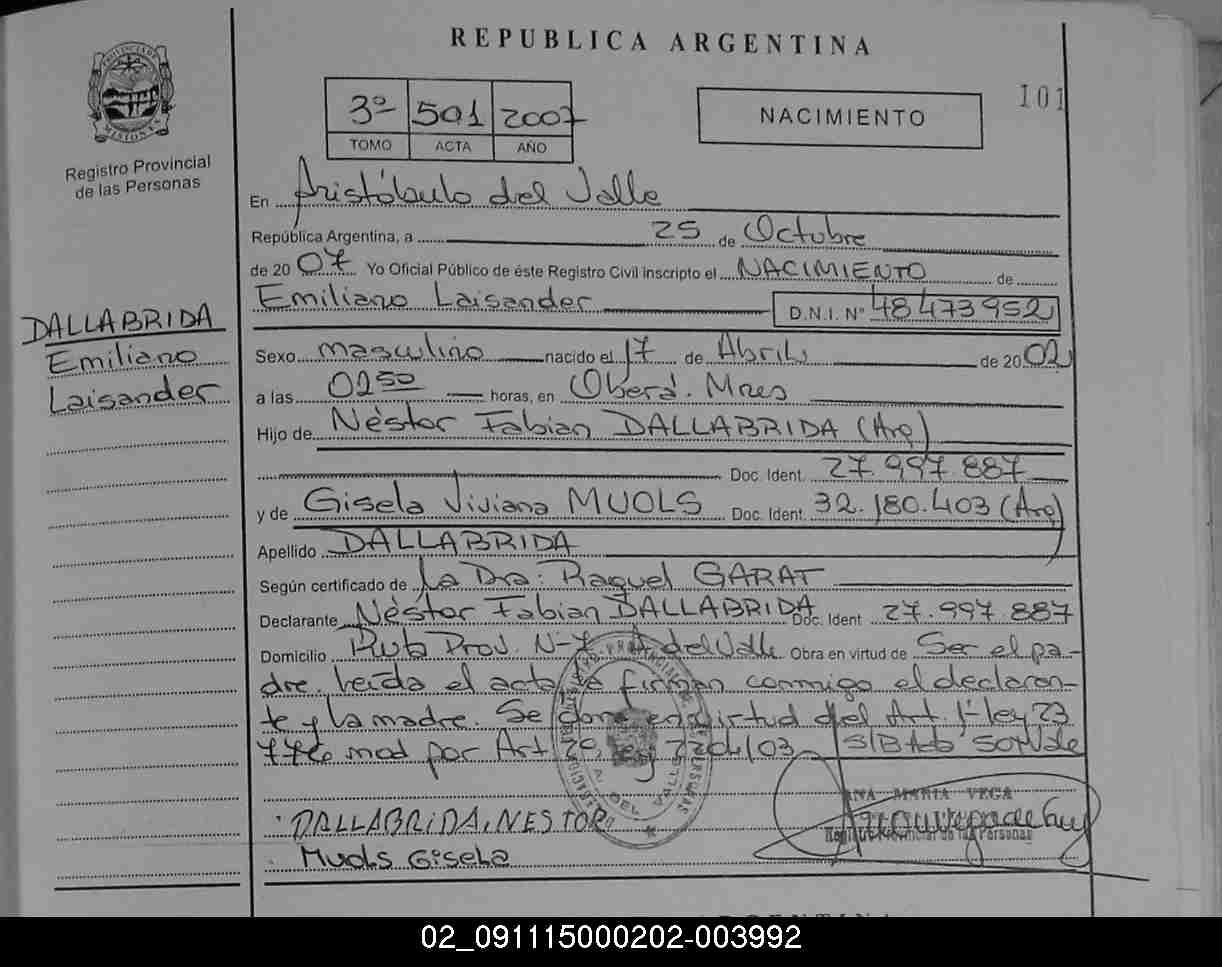 REPUBLICA ARGENTINA
101
PROVINCIA DE MISIONES
Registro Provincial
de las Personas
3º 501 2007
TOMO ACTA AÑO
NACIMIENTO
En Aristóbulo del Valle
República Argentina, a 25 de Octubre
de 20 07 Yo Oficial Público de éste Registro Civil inscripto el NACIMIENTO de
Emiliano Laisander D.N.I. Nº 48473952
DALLABRIDA
Emiliano
Laisander
Sexo masculino nacido el 17 de Abril de 20 02
a las 0250 horas, en Oberá. Mnes
Hijo de Néstor Fabian DALLABRIDA (Arg)
Doc. Ident. 27.997.887
y de Gisela Viviana MUOLS Doc. Ident. 32.180.403 (Arg)
Apellido DALLABRIDA
Según certificado de La Dra: Raquel GARAT
Declarante Néstor Fabian DALLABRIDA Doc. Ident 27.997.887
Domicilio Ruta Prov. N-7. A. del Valle Obra en virtud de Ser el pa-
dre. Leída el acta la firman conmigo el declaran-
te y la madre. Se labra en virtud del Art. 1º ley 23
776 mod por Art 2º, ley S/B Aº Sº N vale
ANA MARIA VEGA
Registro Provincial de las Personas
DALLABRIDA, NESTOR
MUOLS GISELA
02_091115000202-003992